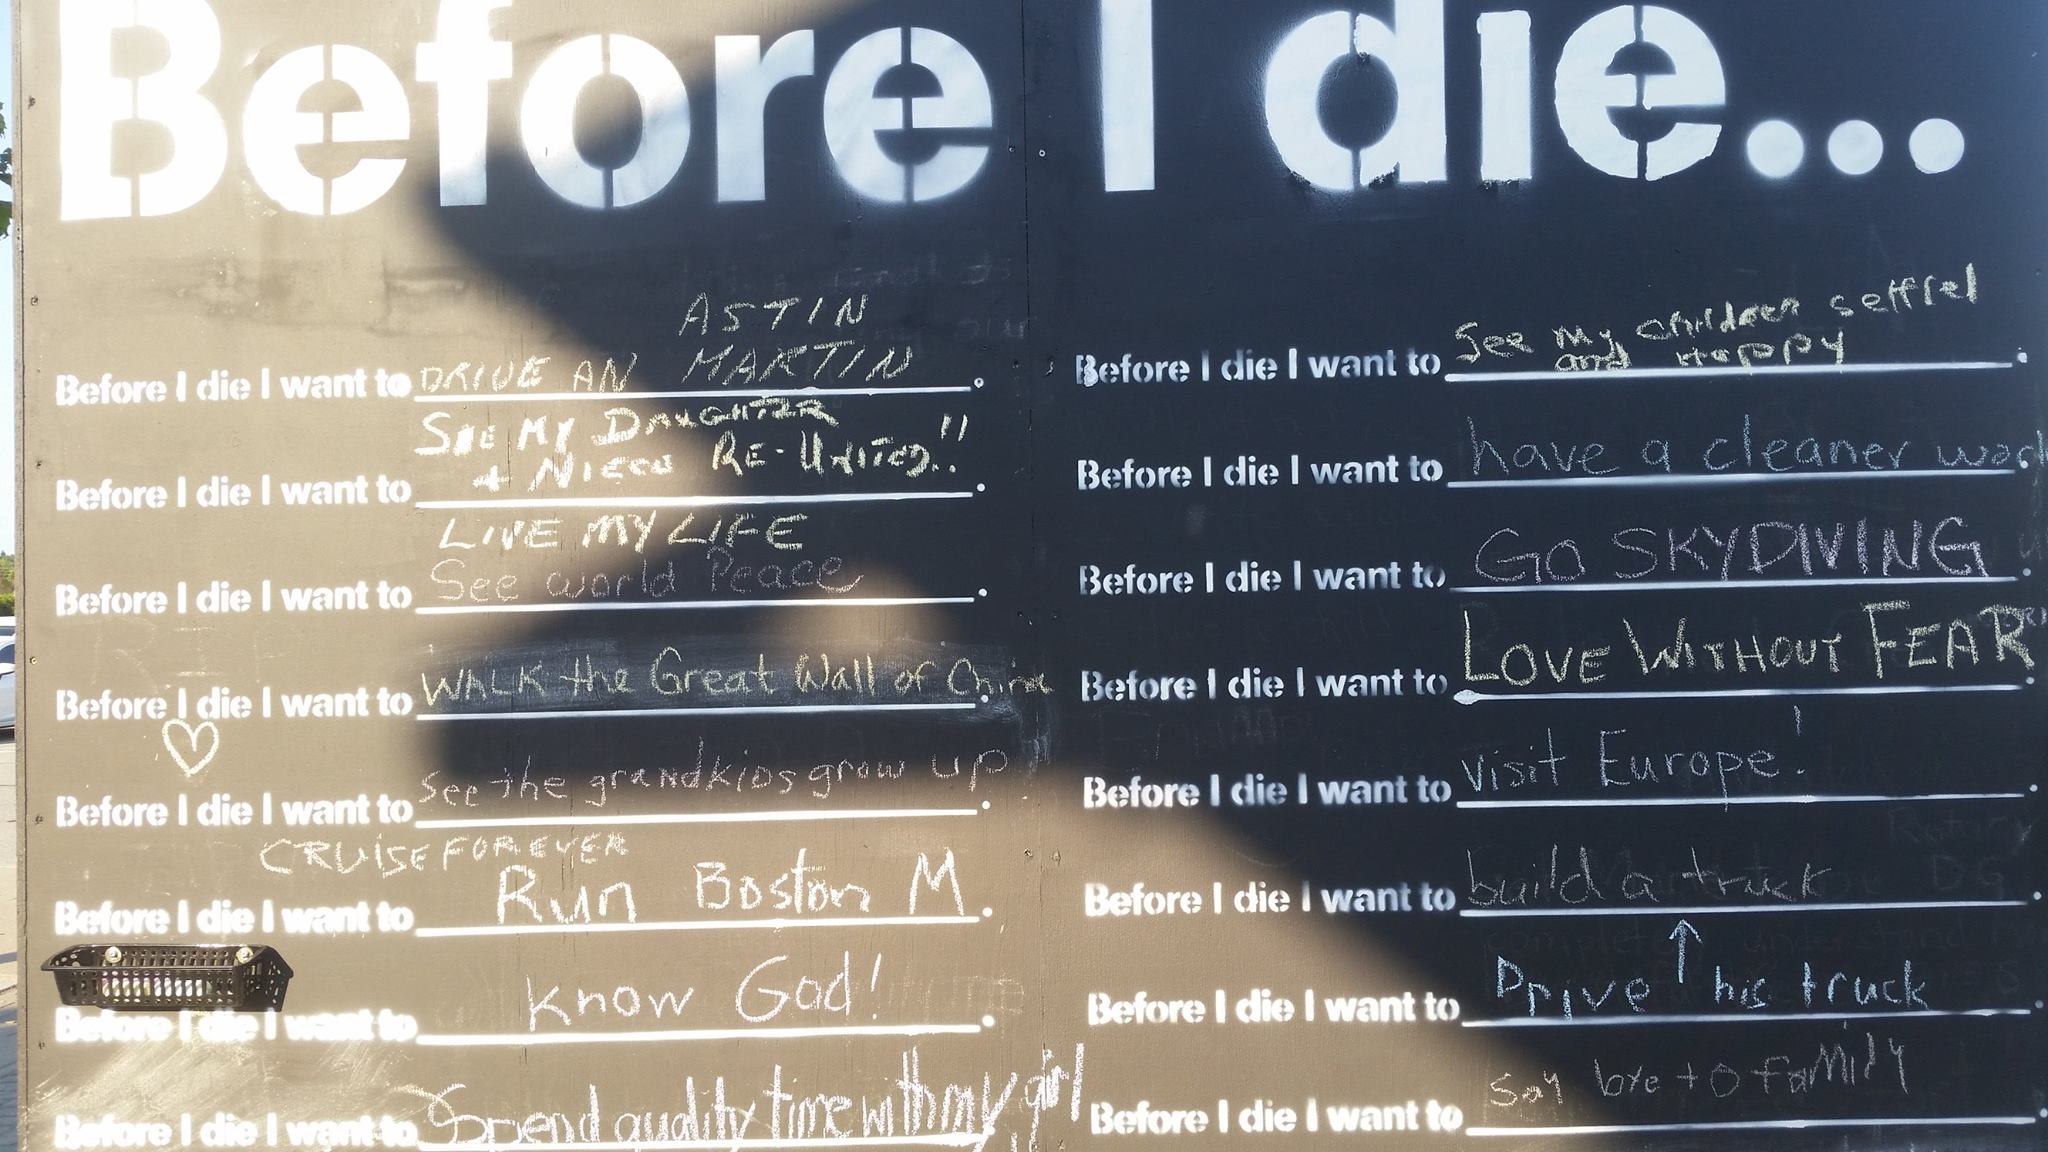 Before I die...
ASTIN
Before I die I want to DRIVE AN MARTIN.
SEE MY DAUGHTER
Before I die I want to + NIECE RE-UNITED!!.
LIVE MY LIFE
Before I die I want to See world Peace.
Before I die I want to WALK the Great Wall of China.
Before I die I want to see the grandkids grow up.
CRUISE FOREVER
Before I die I want to Run Boston M.
Before I die I want to Know God!.
Before I die I want to Spend quality time with my girl
See my children
Before I die I want to and Happy.
Before I die I want to have a cleaner.
Before I die I want to GO SKYDIVING.
Before I die I want to LOVE WITHOUT FEAR.
Before I die I want to visit Europe!.
Before I die I want to build a truck.
Before I die I want to Drive his truck.
Before I die I want to Say bye to family.